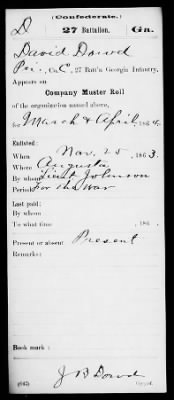 (Confederate.)
D 27 Battalion. Ga.
David Dowd
Pvt., Co. C, 27 Batt'n Georgia Infantry.
Appears on
Company Muster Roll
of the organization named above,
for March & April, 1864.
Enlisted:
When Nov. 25, 1863.
Where Augusta
By whom Lieut Johnson
Period For the War
Last paid:
By whom
To what time , 186 .
Present or absent Present
Remarks:
Book mark:
J B Dowd
(642) Copyist.